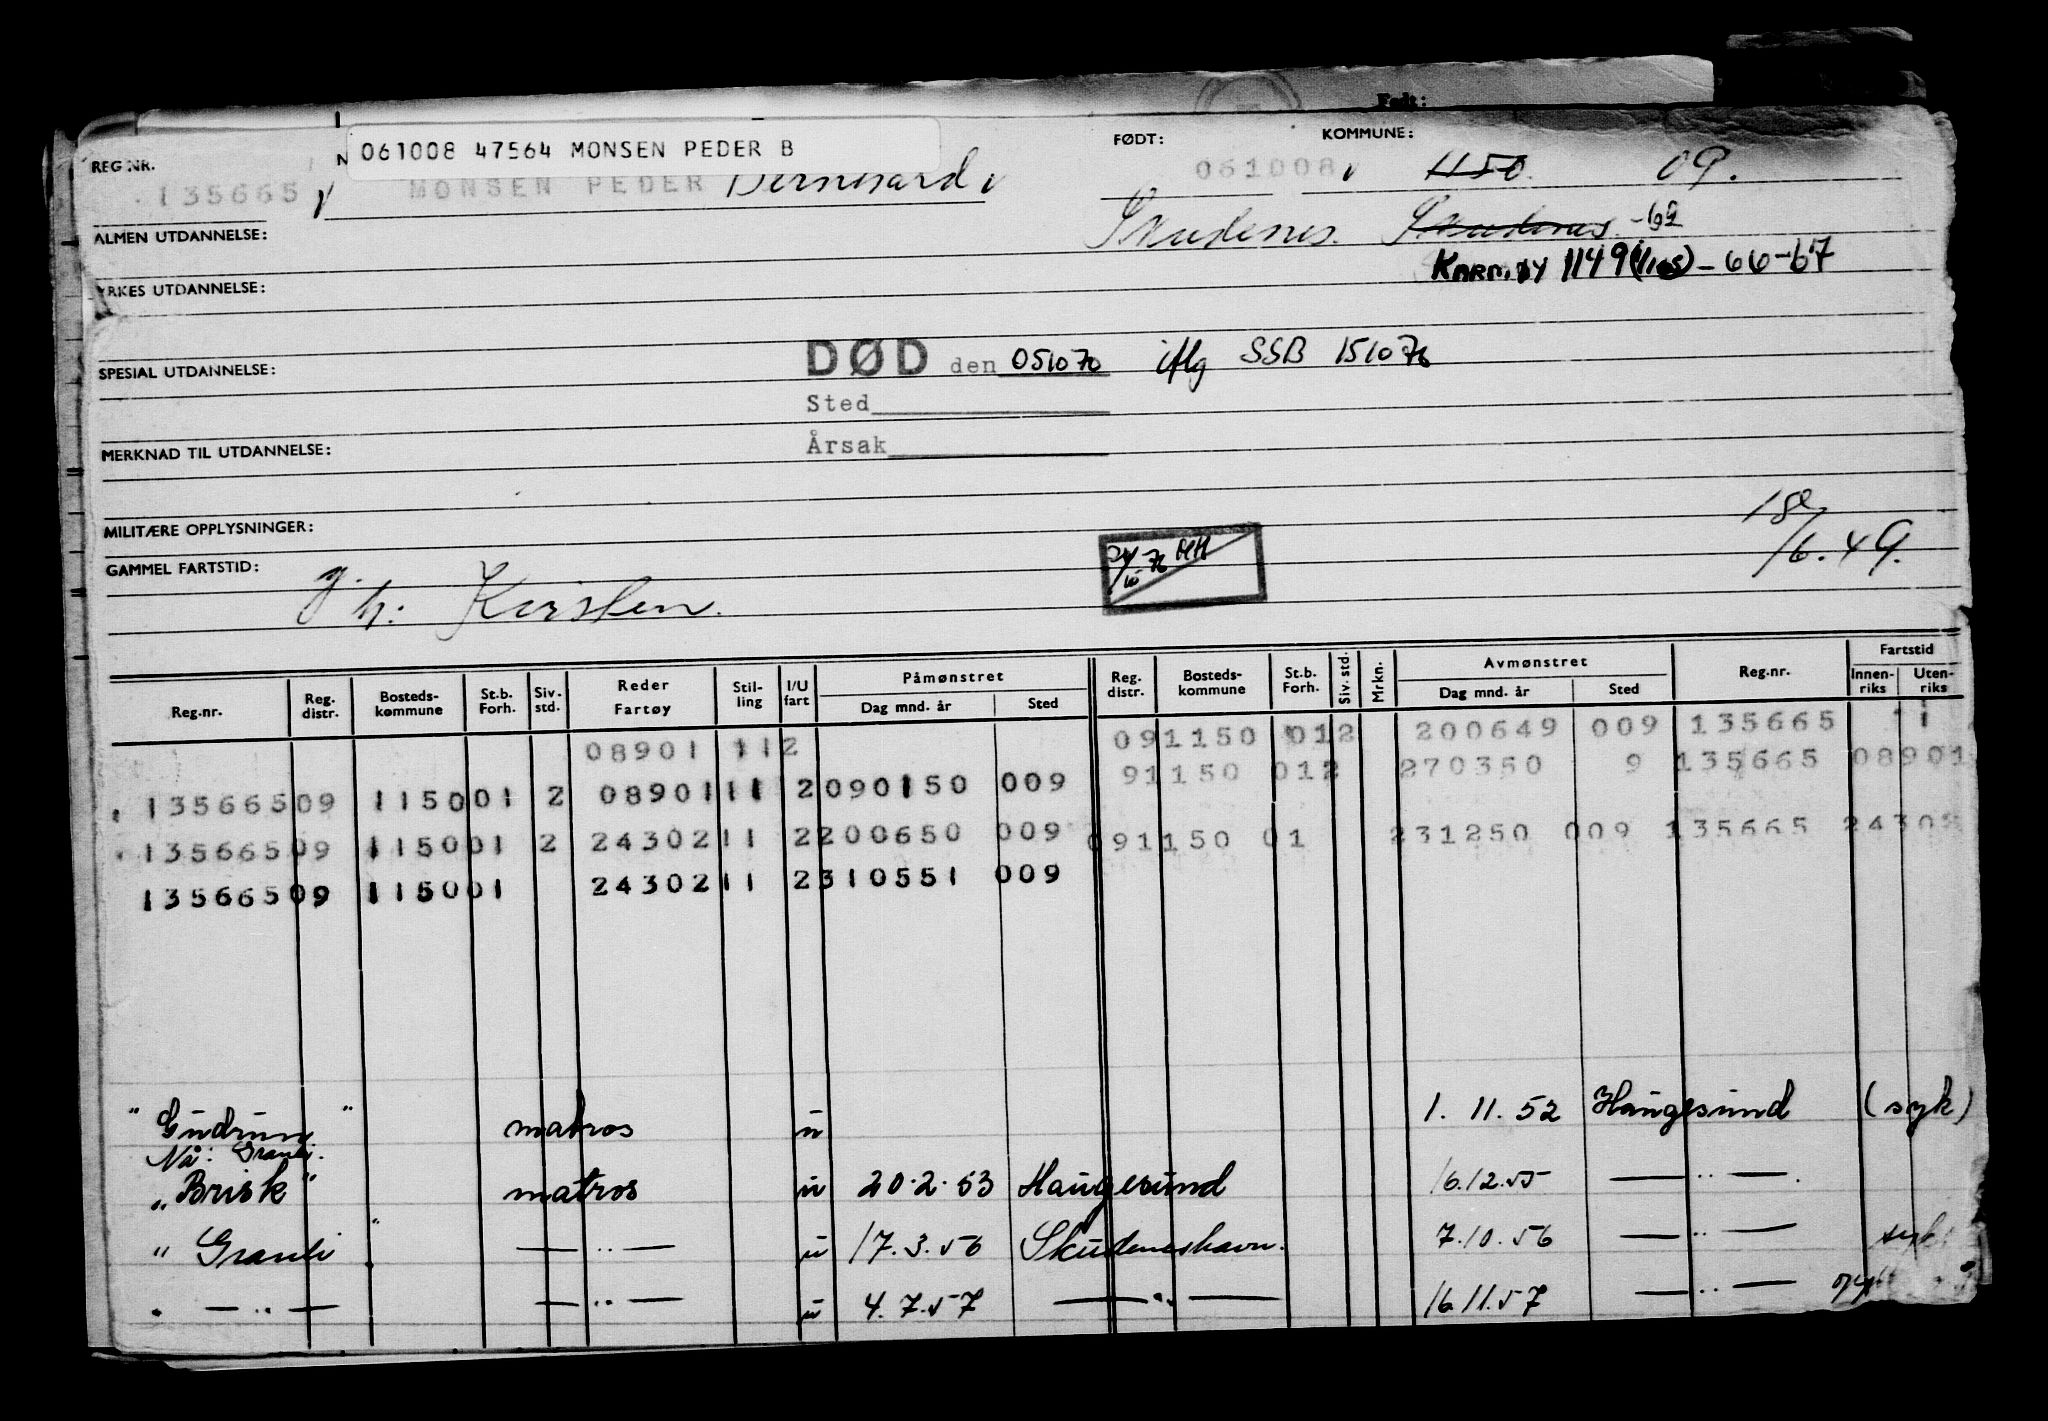 Født:
REG NR.
061008 47564 MONSEN PEDER B
FØDT:
KOMMUNE:
135665
MONSEN PEDER Bernhard
061008
1150
09.
ALMEN UTDANNELSE:
Skudenes. Skudenes -62
KARMØY 1149 - 66-67
YRKES UTDANNELSE:
SPESIAL UTDANNELSE:
DØD den 051070 iflg SSB 151076
Sted
Årsak
MERKNAD TIL UTDANNELSE:
MILITÆRE OPPLYSNINGER:
GAMMEL FARTSTID:
/6.49.
Kirsten
Reg.nr. Reg. distr. Bosteds-kommune St.b. Forh. Siv. std. Reder Fartøy Stil-ling I/U fart Påmønstret Dag mnd. år Sted Reg. distr. Bosteds-kommune St.b. Forh. Siv. std. Mrkn. Avmønstret Dag mnd. år Sted Reg.nr. Fartstid Innen-riks Uten-riks
08901 112 091150 012 200649 009 135665 1
135665 09 1150 01 2 08901 11 2 090150 009 91150 012 270350 9 135665 08901
135665 09 1150 01 2 24302 11 2 200650 009 091150 01 231250 009 135665 24302
135665 09 1150 01 24302 11 2 310551 009
" Gudrun " matros u 1. 11. 52 Haugesund (syk)
Nå: Granli.
" Brisk " matros u 20.2.53 Haugesund 16.12.55 — " —
" Granli " — " — u 17.3.56 Skudeneshavn. 7.10.56 — " — syk
— " — — " — u 4.7.57 — " — 16.11.57 — " —